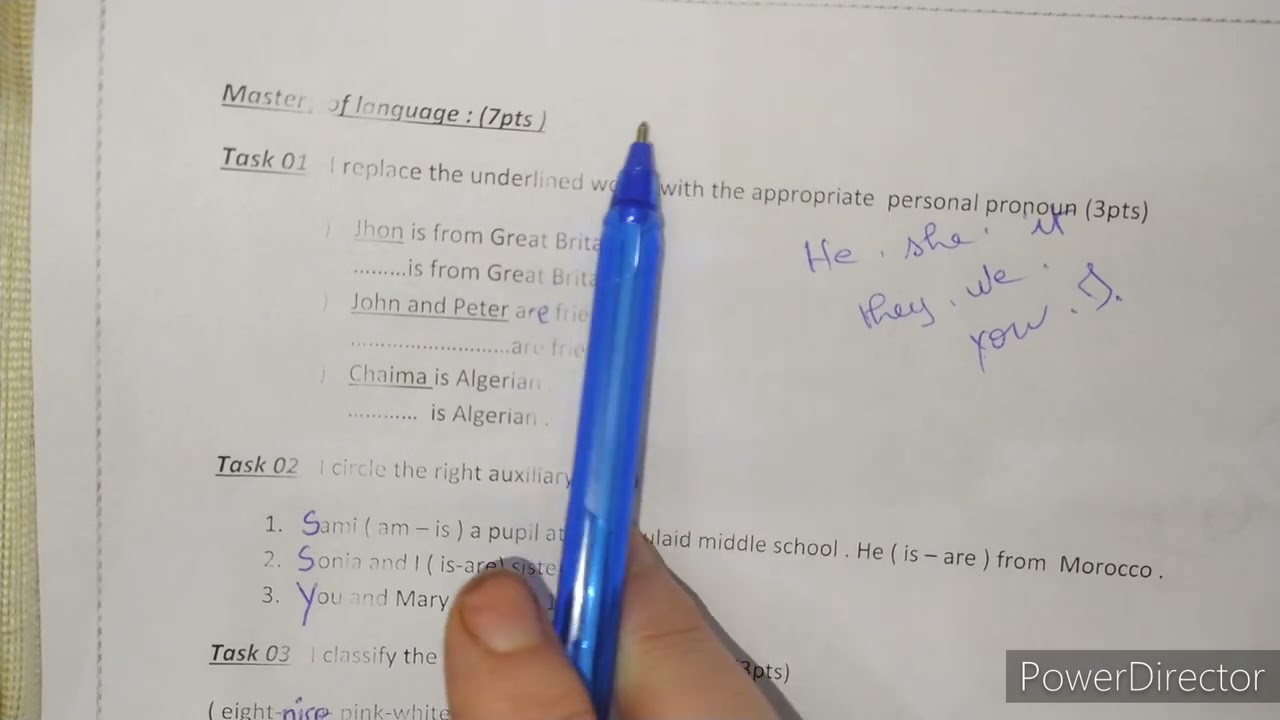 Master of language : (7pts )
Task 01 I replace the underlined with the appropriate personal pronoun (3pts)
) Jhon is from Great
.........is from Great
He . she . it
) John and Peter are
they . we .
...........................are
you . I .
) Chaima is Algerian .
............ is Algerian .
Task 02 I circle the right auxiliary
1. Sami ( am – is ) a pupil at middle school . He ( is – are ) from Morocco .
2. Sonia and I ( is-are)
3. You and Mary
Task 03 I classify the (3pts)
( eight-nice pink-white
PowerDirector